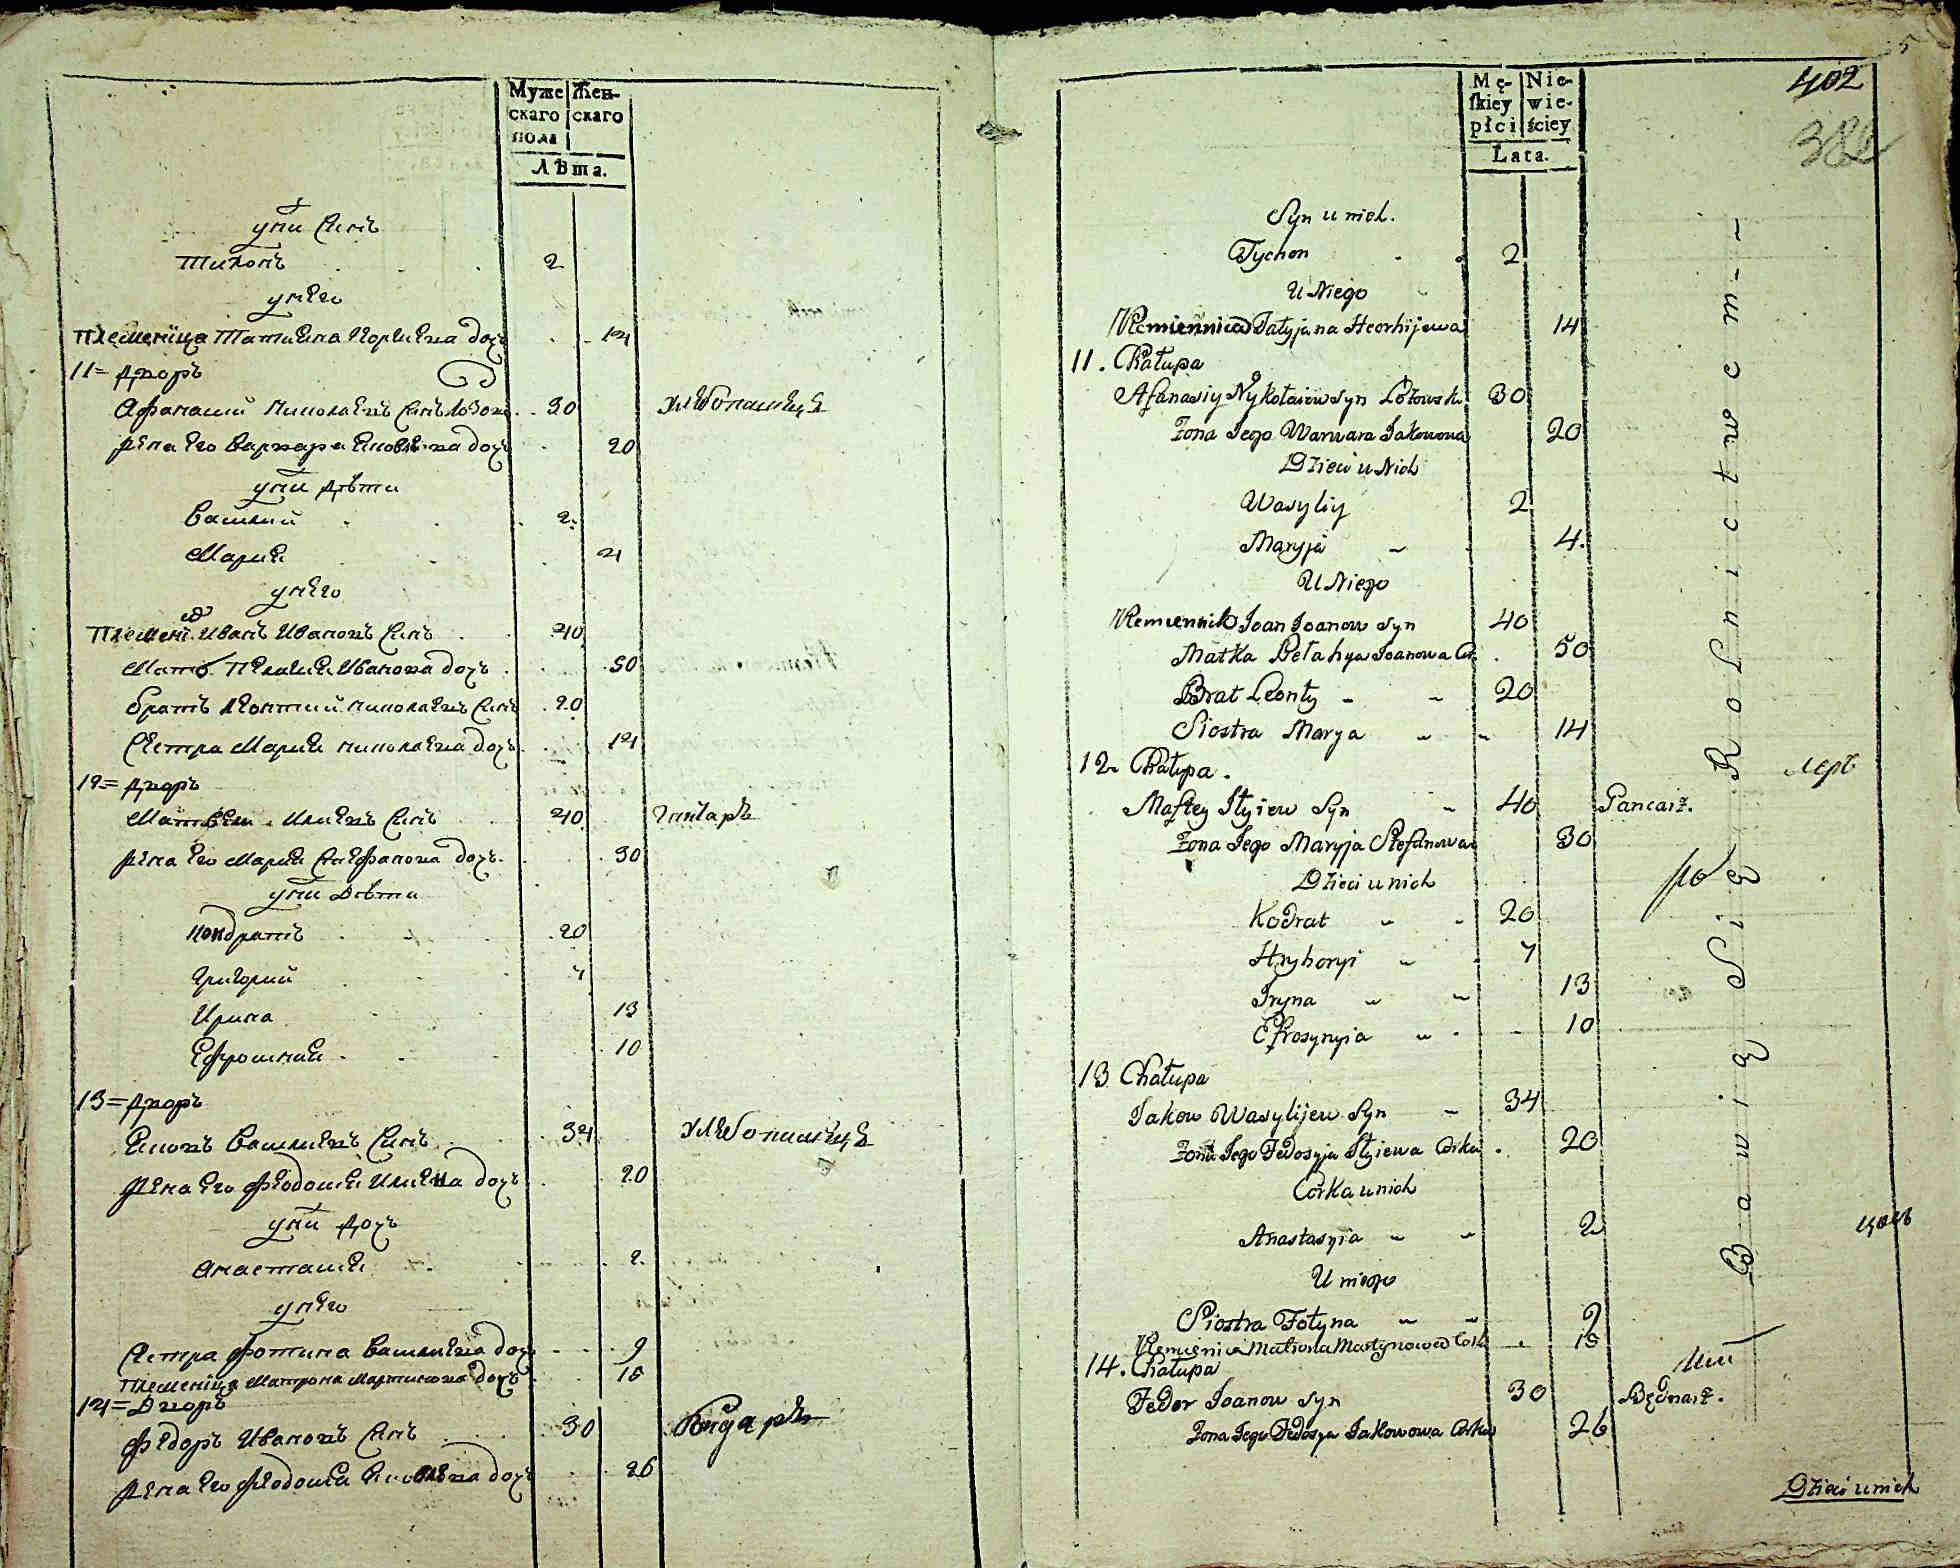 Муже скаго пола
Жен- скаго
Лѣта.
у них Синъ
Тихонъ 2
у него
племеница Татияна Георгиева дочъ 14
11 = Дворъ
Афанасий Николаевъ Синъ 30
Жена его Варвара Яковлева дочъ 20
у них дѣти
Василий 2
Мария 4
у него
племен. Иванъ Ивановъ Синъ 40
Мать Пелагия Иванова дочъ 50
братъ Леонтий Николаевъ Синъ 20
Сестра Мария Николаева дочъ 14
12 = Дворъ
Матвей Илиевъ Синъ 40
Жена его Мария Стефанова дочъ 30
у них Дѣти
Кондратъ 20
Григорий 7
Ирина 13
Ефросиния 10
13 = Дворъ
Яковъ Василиевъ Синъ 34
Жена его Феодосия Илиева дочъ 20
у них дочъ
Анастасия 2
у него
Сестра Фотина Василиева дочъ 9
племеница Матрона Мартинова дочъ 15
14 = Дворъ
Феодоръ Ивановъ Синъ 30 Бондаръ
Жена его Феодосия Яковлева дочъ 26
5
402
382
Mę- skiey płci
Nie- wie- ściey
Lata.
Syn u nich.
Tychon 2
U Niego
Plemiennica Tatyjana Heorhijewa 14
11. Chałupa
Afanasiy Nykołaiew Syn 30
Żona Jego Warwara Jakowowa 20
Dzieci u Nich
Wasyliy 2
Maryja 4.
U Niego
Plemiennik Joan Joanow Syn 40
Matka Pełahya Joanowa C. 50
Brat Leonty 20
Siostra Marya 14
12 Chałupa.
Maftey Iłyiew Syn 40 Gancarz.
Żona Jego Maryja Stefanowa 30
Dzieci u nich
Kodrat 20
Hryhoryi 7
Iryna 13
Efrosynyia 10
13 Chałupa
Jakow Wasylijew Syn 34
Żona Jego Fedosyja Iłyiewa Corka 20
Córka u nich
Anastasyia 2
U niego
Siostra Fotyna 9
Plemienica Matrona Martynowa Cork 15
14. Chałupa
Fedor Joanow Syn 30 Bednarz.
Żona Jego Fedosya Jakowowa Corka 26
Bawią Się Rolnictwem
Dzieci u nich